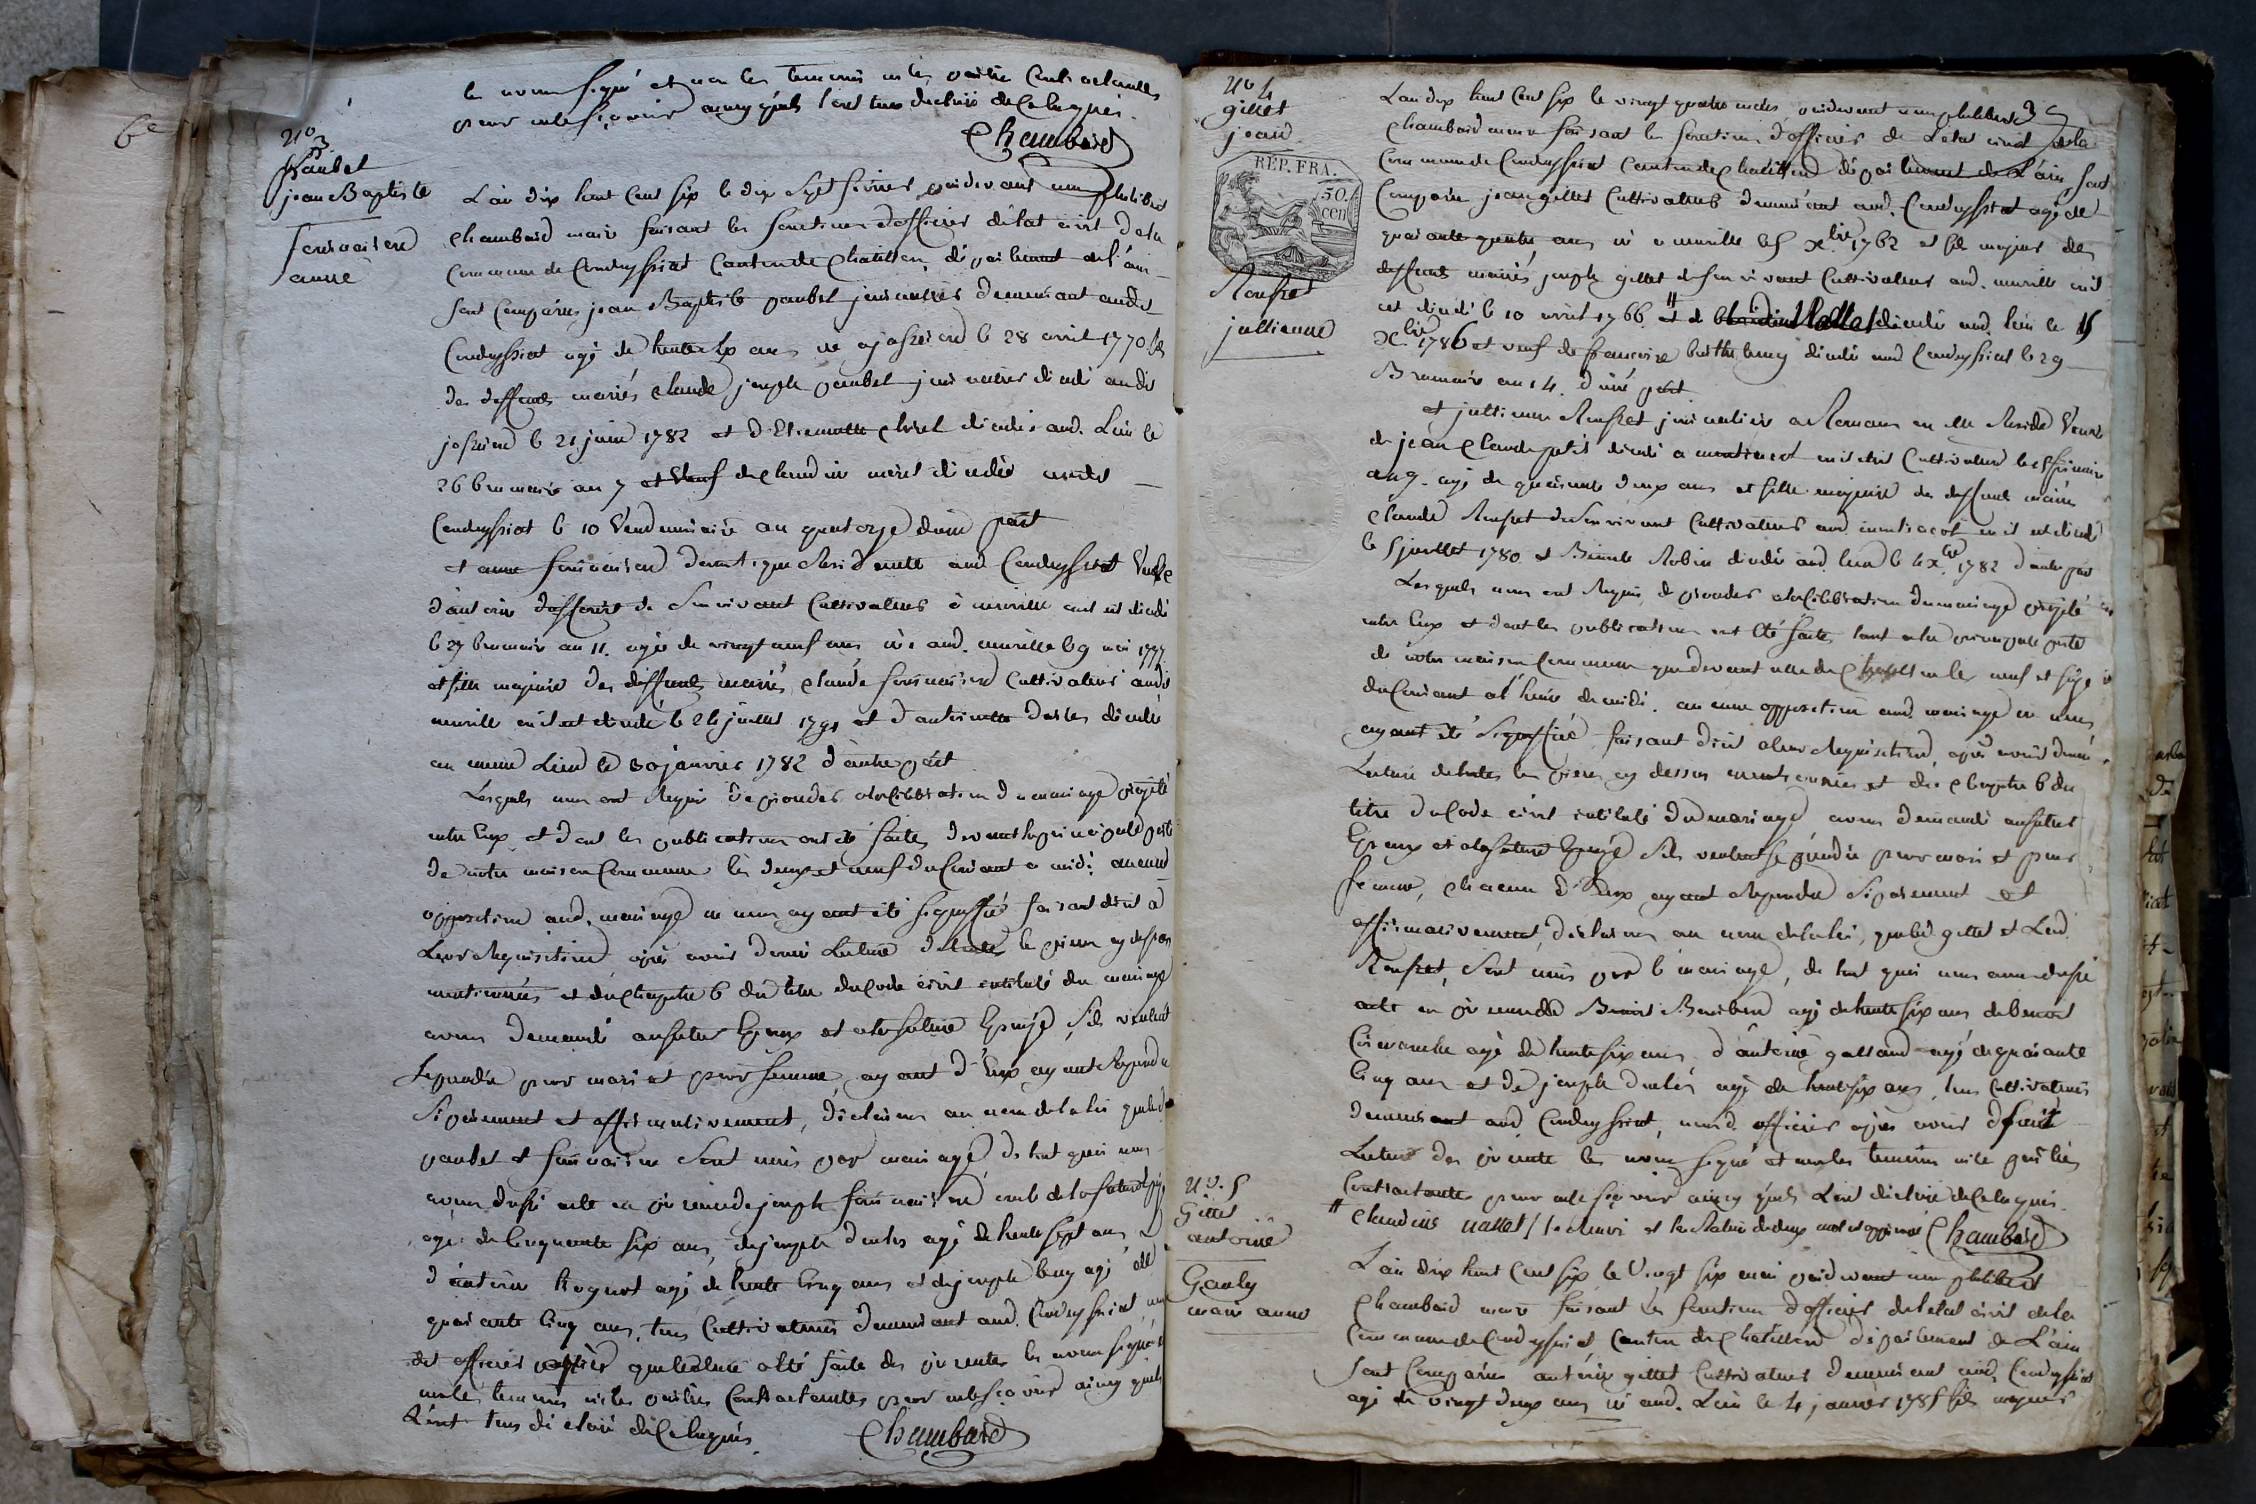 6e
le avons signé et non les temoins ni les parties Contractantes
pour ne le sçavoir ainsy qu'ils l'ont tous déclaré de Ce Requis.
Chambard
No 3
Paubel
jean Baptiste
fournaison
anne
L'an dix huit Cent six le dix Sept fevrier pardevant nous philibert
Chambard maire faisant les fonctions d'officier d'état civil de la
Commune de Condeyssiat Canton de Chatillon, département de l'ain
sont Comparus jean Baptiste paubel journalier demeurant audit
Condeyssiat agé de trente six ans né a josserand le 28 avril 1770 fils
des deffunts mariés Claude joseph paubel journalier décédé audit
le 21 juin 1782 et d'Etiennette décédée aud. Lieu le
26 brumaire an 7 et veuf de Claudine décédée audit
Condeyssiat le 10 Vendemiaire an quatorze d'une part
et anne fournaison domestique Residente aud Condeyssiat Veuve
d'antoine de son vivant Cultivateur à neuville ou il est décédé
le 29 brumaire an 11. agée de vingt neuf ans née aud. neuville le 9 mai 1777
et fille majeure des deffunts mariés, Claude fournaison Cultivateur audit
neuville ou il est décédé le 24 juillet 1791 et d'antoinette décédée
au meme Lieu le 30 janvier 1782 d'autre part
Lesquels nous ont Requis de proceder a la Celebration du mariage projeté
entre Eux, et dont les publications ont été faites devant la principale porte
de notre maison Commune les deux et neuf du Courant a midi; aucune
opposition aud. mariage ne nous ayant été signiffié faisant droit a
Leur Requisition, après avoir donné Lecture de toutes les pieces cy dessus
mentionnées et du Chapitre 6 du titre du Code Civil intitulé du mariage
avons demandé au futur Epoux et a la future Epouse, s'ils veulent
se prendre pour mari et pour femme, ayant d'Eux ayant Repondu
séparement et affirmativement, déclarons au nom de la loi que led.
paubel et fournaison sont unis par mariage de tout quoi nous
avons dressé acte en présence de joseph fournaison oncle de la future
agé de Cinquante six ans, de joseph agé de trente sept ans
d'antoine agé de trente Cinq ans et de joseph agé de
quarante Cinq ans, tous Cultivateurs demeurant aud. Condeyssiat, nous
dit officier après que lecture a été faite des présentes les avons signé et
non les temoins ni les parties Contractantes pour ne le sçavoir ainsy qu'ils
L'ont tous déclaré de Ce Requis.
Chambard
No 4
gillet
jean
RÉP. FRA.
50.
cen
Renfret
jullienne
L'an dix huit Cent six le vingt quatre pardevant nous philibert
Chambard maire faisant les fonctions d'officier de L'etat civil de la
Commune de Condeyssiat Canton de Chatillon département de L'ain, sont
Comparu jean gillet Cultivateur demeurant aud. Condeyssiat agé de
quarante quatre ans né a neuville le 5 xbre 1762 et fils majeur des
deffunts mariés joseph gillet de son vivant Cultivateur aud. neuville ou il
est décédé le 10 avril 1766 # et de décédée aud. lieu le 15
xbre 1786 et veuf de françoise décédée aud Condeyssiat le 29
Brumaire an 14. d'une part.
et jullienne Renfret journaliere a Romans ou elle Reside Veuve
de jean Claude petit décédé a ou il etoit Cultivateur le
an 9. agé de quarante deux ans et fille majeure des deffunts mariés
Claude Renfret de son vivant Cultivateur aud. ou il est décédé
le 5 juillet 1780 et Robin décédée aud. lieu le 4 xbre 1782 d'autre part
Lesquels nous ont Requis de proceder a la Celebration du mariage projeté
entre Eux et dont les publications ont été faites tant a la principale porte
de notre maison Commune que devant celle de le neuf et seize
du Courant a l'heure de midi. aucune opposition aud. mariage ne nous
ayant été Signiffié, faisant droit a leur Requisition, après avoir donné
Lecture de toutes les pieces cy dessus mentionnées et du Chapitre 6 du
titre du Code Civil intitulé du mariage avons demandé au futur
Epoux et a la future Epouse s'ils veulent se prendre pour mari et pour
femme, chacun d'Eux ayant Repondu séparement et
affirmativement, déclarons au nom de la loi, que led. gillet et Lad.
Renfret, sont unis par le mariage, de tout quoi nous avons dressé
acte en présence de Benoit agé de trente six ans de
agé de trente six ans, d'antoine galland agé de quarante
Cinq ans et de joseph agé de trente six ans, tous Cultivateurs
demeurant aud Condeyssiat, nousd. officier après avoir fait
Lecture des présentes les avons signé et non les temoins ni les parties
Contractantes pour ne le sçavoir ainsy qu'ils L'ont déclaré de Ce Requis.
# Claudine et la Rature de deux mots approuvé Chambard
No. 5
Gillet
antoine
Gauly
marie anne
L'an dix huit Cent six le Vingt six mai pardevant nous philibert
Chambard maire faisant les fonctions d'officier de l'etat civil de la
Commune de Condeyssiat Canton de Chatillon département de L'ain
sont Comparu antoine gillet Cultivateur demeurant aud. Condeyssiat
agé de vingt deux ans né aud. Lieu le 4 janvier 1785 fils majeur